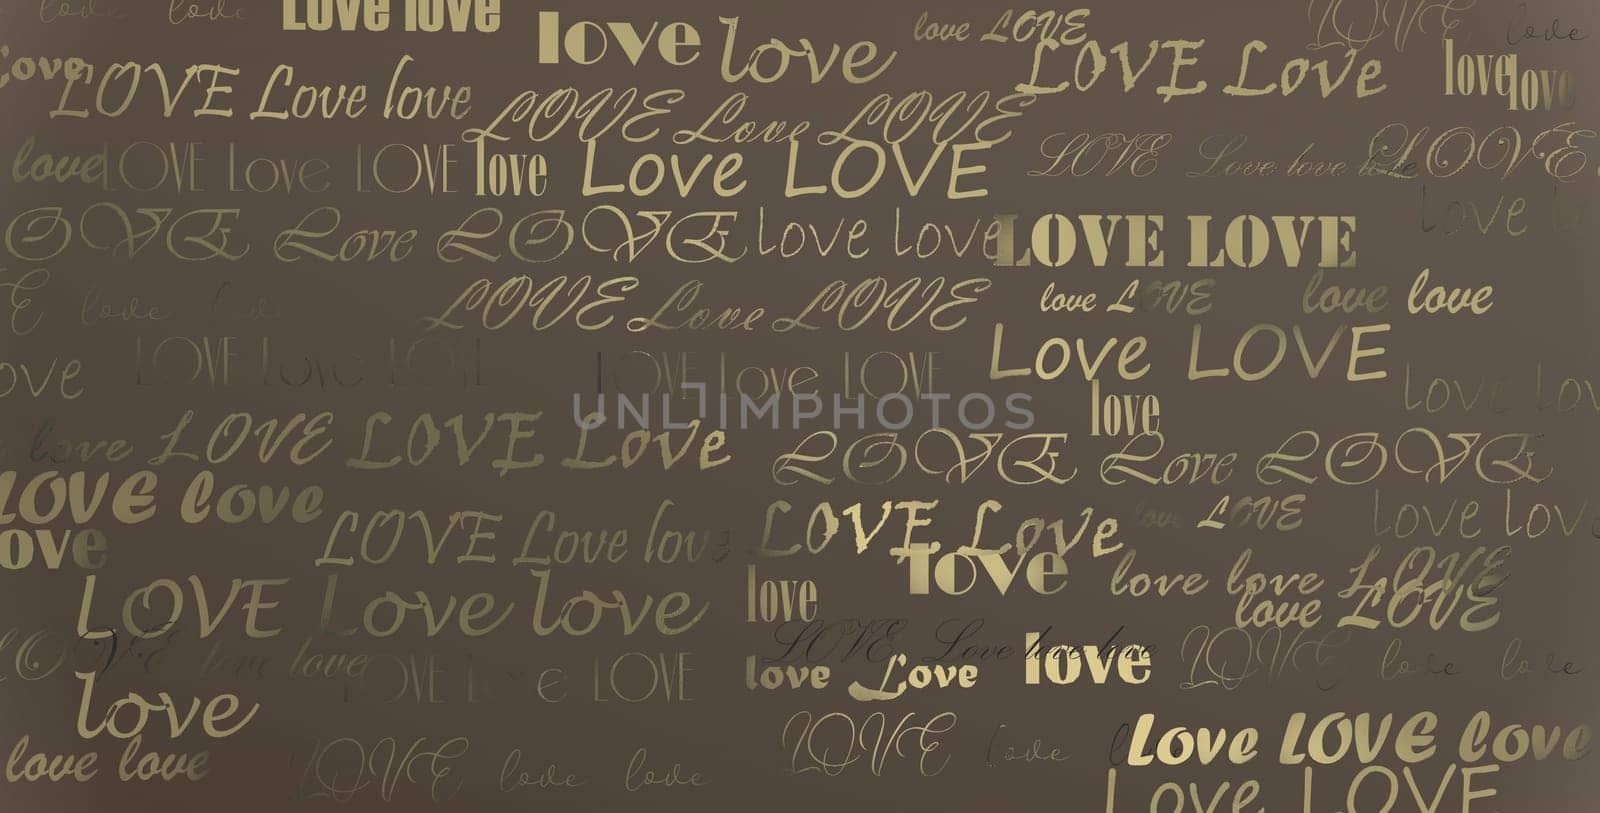 love love Love love love LOVE LOVE love
love love love LOVE LOVE Love love love
Love LOVE Love love
LOVE Love LOVE
love LOVE Love LOVE love Love LOVE LOVE Love love love LOVE
LOVE Love LOVE love love LOVE LOVE love
love love LOVE Love LOVE love LOVE love love
LOVE Love LOVE LOVE Love LOVE Love LOVE
ove love love
UNLIMPHOTOS
love LOVE LOVE Love love
LOVE Love LOVE
LOVE love LOVE Love love LOVE love love
love LOVE Love love love love love LOVE
LOVE Love love love love LOVE
LOVE love love LOVE Love LOVE LOVE Love love love love LOVE love love
love love Love
love LOVE love Love LOVE love
love love LOVE love love
Love LOVE